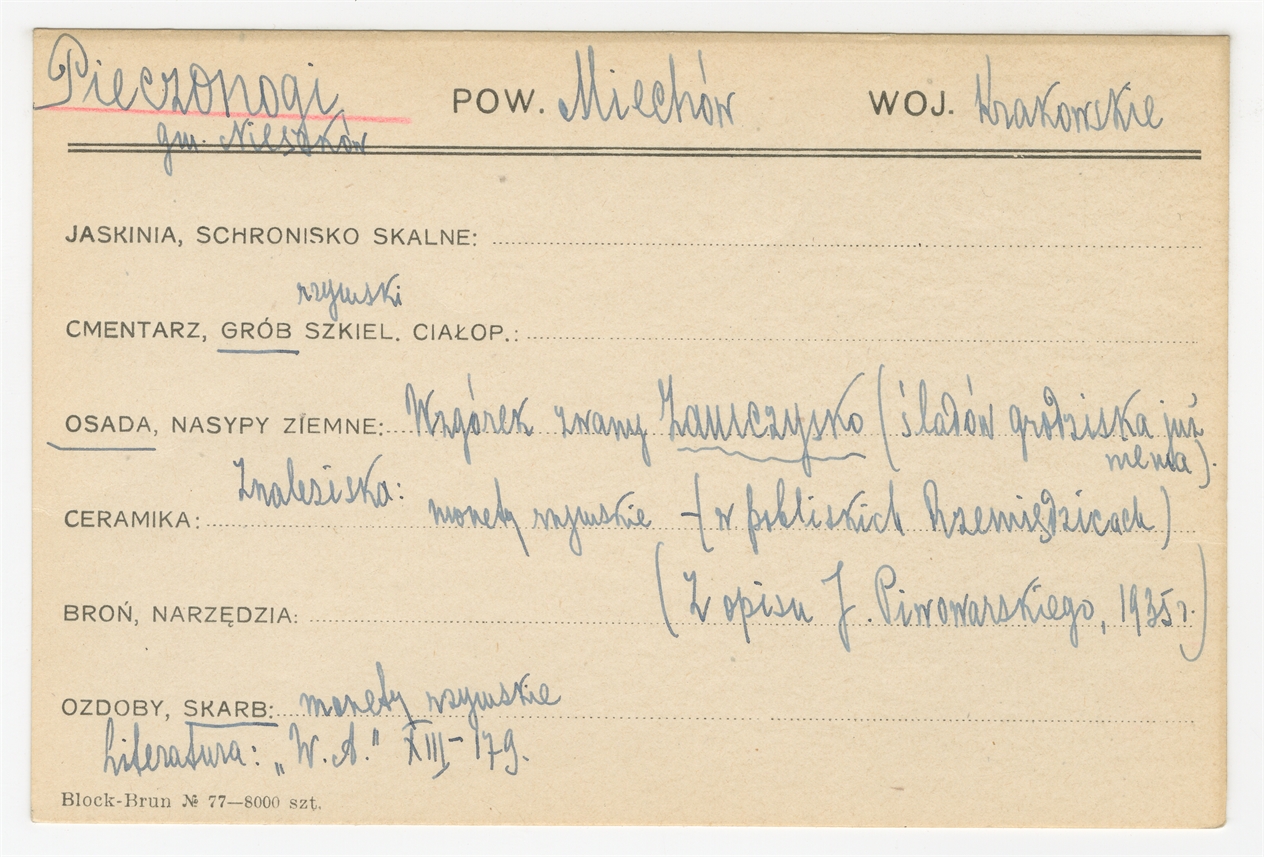 Pieczonogi POW. Miechów WOJ. Krakowskie
gm. Nieszków
JASKINIA, SCHRONISKO SKALNE:
rzymski
CMENTARZ, GRÓB SZKIEL. CIAŁOP.:
OSADA, NASYPY ZIEMNE: Wzgórek zwany Zamczysko (śladów grodziska już
niema).
Znaleziska:
CERAMIKA: monety rzymskie – (w pobliskich Rzemiędzicach)
BROŃ, NARZĘDZIA: (Z opisu J. Piwowarskiego, 1935 r.)
OZDOBY, SKARB: monety rzymskie
Literatura: „W. A." XIII – 179.
Block-Brun № 77—8000 szt.